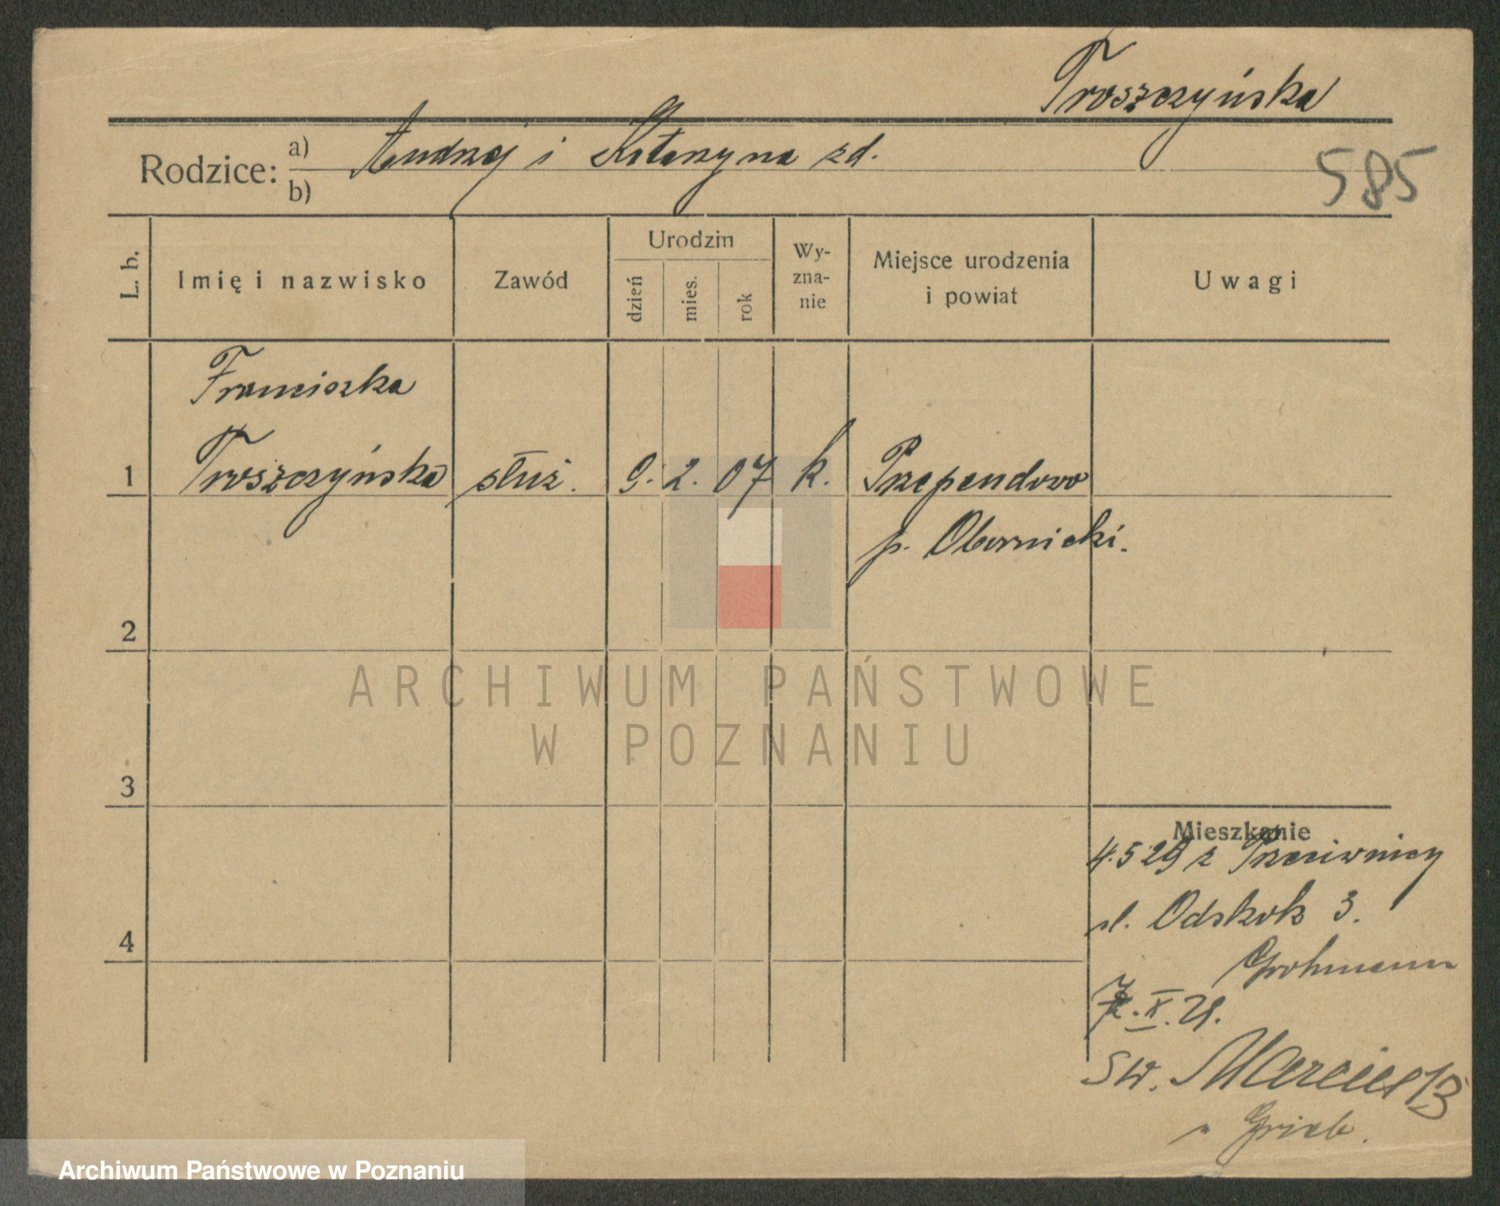 Troszczyńska
Rodzice: a) b) Andrzej i Katarzyna zd.
585
L. b.
Imię i nazwisko
Zawód
Urodzin
dzień
mies.
rok
Wy-
zna-
nie
Miejsce urodzenia
i powiat
Uwagi
Franciszka
1 Troszczyńska służ. 9. 2. 07 k. Przependowo
p. Obornicki.
2
3
4
Mieszkanie
4.5 29 z
ul. Odskok 3.
Grohmann
X.
Sw. Marcin 13
ARCHIWUM PAŃSTWOWE
W POZNANIU
Archiwum Państwowe w Poznaniu